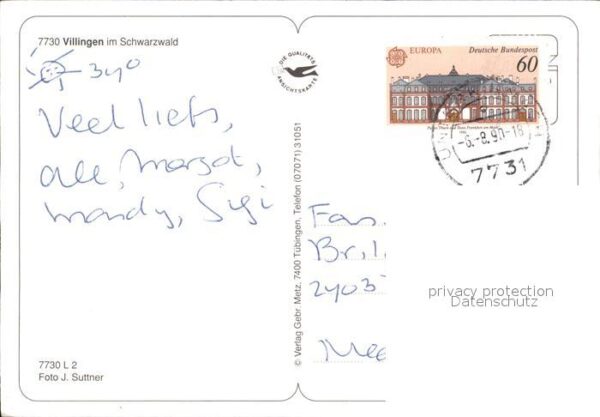 7730 Villingen im Schwarzwald
34°
Veel liefs,
Margot,
Mandy, Sigi
DIE QUALITÄTS
ANSICHTSKARTE
© Verlag Gebr. Metz, 7400 Tübingen, Telefon (07071) 31051
EUROPA Deutsche Bundespost
60
-6.-8.90-18
7731
Fam.
Bril
2403
privacy protection
Datenschutz
7730 L 2
Foto J. Suttner